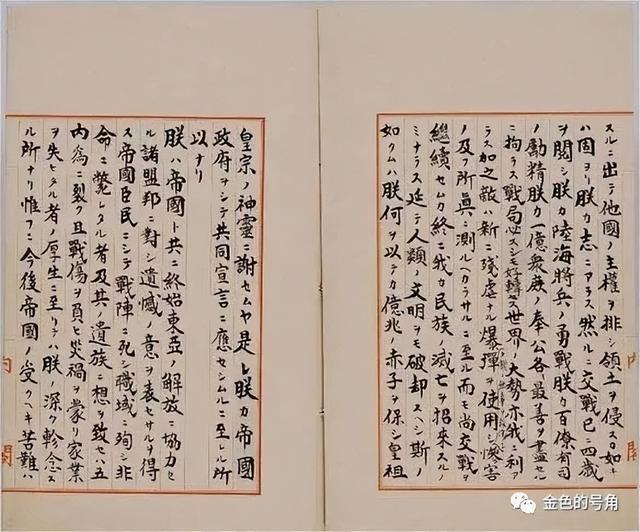 スルニ出テ他國ノ主權ヲ排シ領土ヲ侵スカ如キ
ハ固ヨリ朕カ志ニアラス然ルニ交戰已ニ四歳
ヲ閲シ朕カ陸海將兵ノ勇戰朕カ百僚有司
ノ勵精朕カ一億衆庶ノ奉公各最善ヲ盡セル
ニ拘ラス戰局必スシモ好轉セス世界ノ大勢亦我ニ利ア
ラス加之敵ハ新ニ殘虐ナル爆彈ヲ使用シ慘害
ノ及フ所眞ニ測ルヘカラサルニ至ル而モ尚交戰ヲ
繼續セムカ終ニ我カ民族ノ滅亡ヲ招來スルノ
ミナラス延テ人類ノ文明ヲモ破却スヘシ斯ノ
如クムハ朕何ヲ以テカ億兆ノ赤子ヲ保シ皇祖
皇宗ノ神靈ニ謝セムヤ是レ朕カ帝國
政府ヲシテ共同宣言ニ應セシムルニ至レル所
以ナリ
朕ハ帝國ト共ニ終始東亞ノ解放ニ協力セ
ル諸盟邦ニ對シ遺憾ノ意ヲ表セサルヲ得
ス帝國臣民ニシテ戰陣ニ死シ職域ニ殉シ非
命ニ斃レタル者及其ノ遺族ニ想ヲ致セハ五
内爲ニ裂ク且戰傷ヲ負ヒ災禍ヲ蒙リ家業
ヲ失ヒタル者ノ厚生ニ至リテハ朕ノ深ク軫念ス
ル所ナリ惟フニ今後帝國ノ受クヘキ苦難ハ
内閣
金色的号角